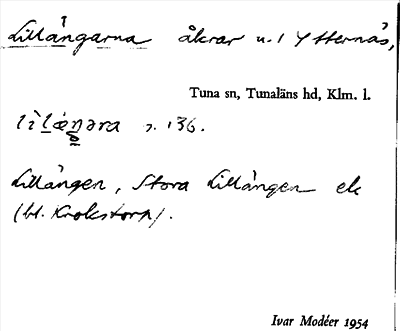 Lillångarna åkrar u. 1 Ytternäs,
Tuna sn, Tunaläns hd, Klm. l.
s. 136.
Lillången, Stora Lillången ek
(bl. Krokstorp).
Ivar Modéer 1954